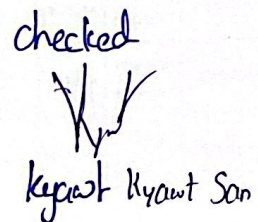 checked
Kyawt Kyawt San